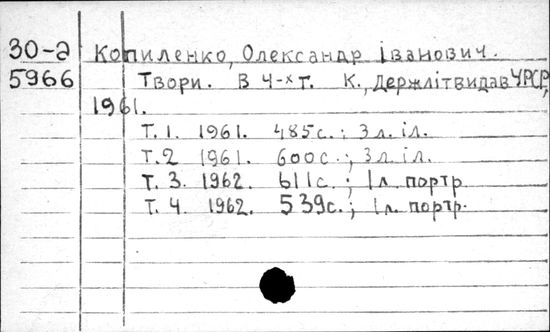 30-д Копиленко, Олександр Іванович.
5966 Твори. В 4-х т. К., Держлітвидав УРСР,
1961.
Т. 1. 1961. 485с.; 3 л. іл.
Т. 2 1961. 600с.; 3 л. іл.
Т. 3. 1962. 611с.; 1 л. портр.
Т. 4. 1962. 539с.; 1 л. портр.